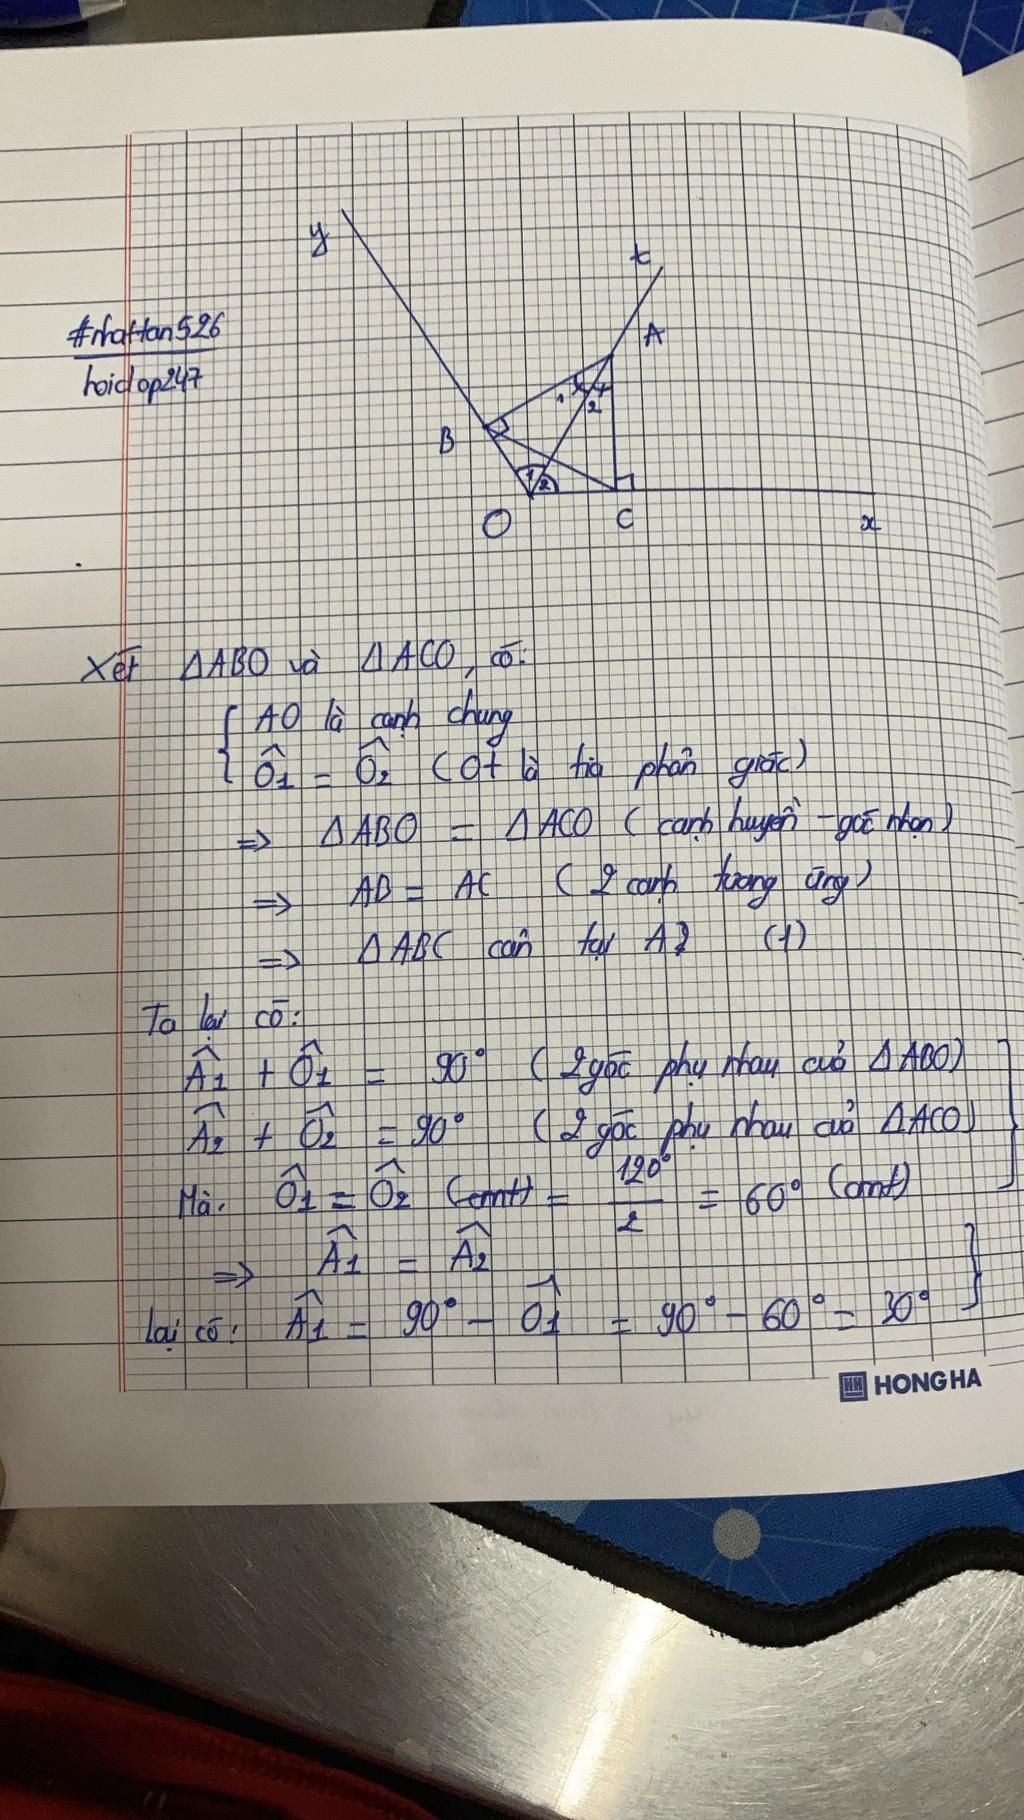 y
t
A
#nhattan526
hoidap247
1
2
B
1
2
O
C
x
Xét ΔABO và ΔACO, có:
AO là cạnh chung
Ô1 = Ô2 (Ot là tia phân giác)
=> ΔABO = ΔACO (cạnh huyền - góc nhọn)
=> AB = AC (2 cạnh tương ứng)
=> ΔABC cân tại A (1)
Ta lại có:
Â1 + Ô1 = 90° (2 góc phụ nhau của ΔABO)
Â2 + Ô2 = 90° (2 góc phụ nhau của ΔACO)
Mà: Ô1 = Ô2 (cmt) = 120°/2 = 60° (cmt)
=> Â1 = Â2
lại có: Â1 = 90° - Ô1 = 90° - 60° = 30°
HH HONG HA